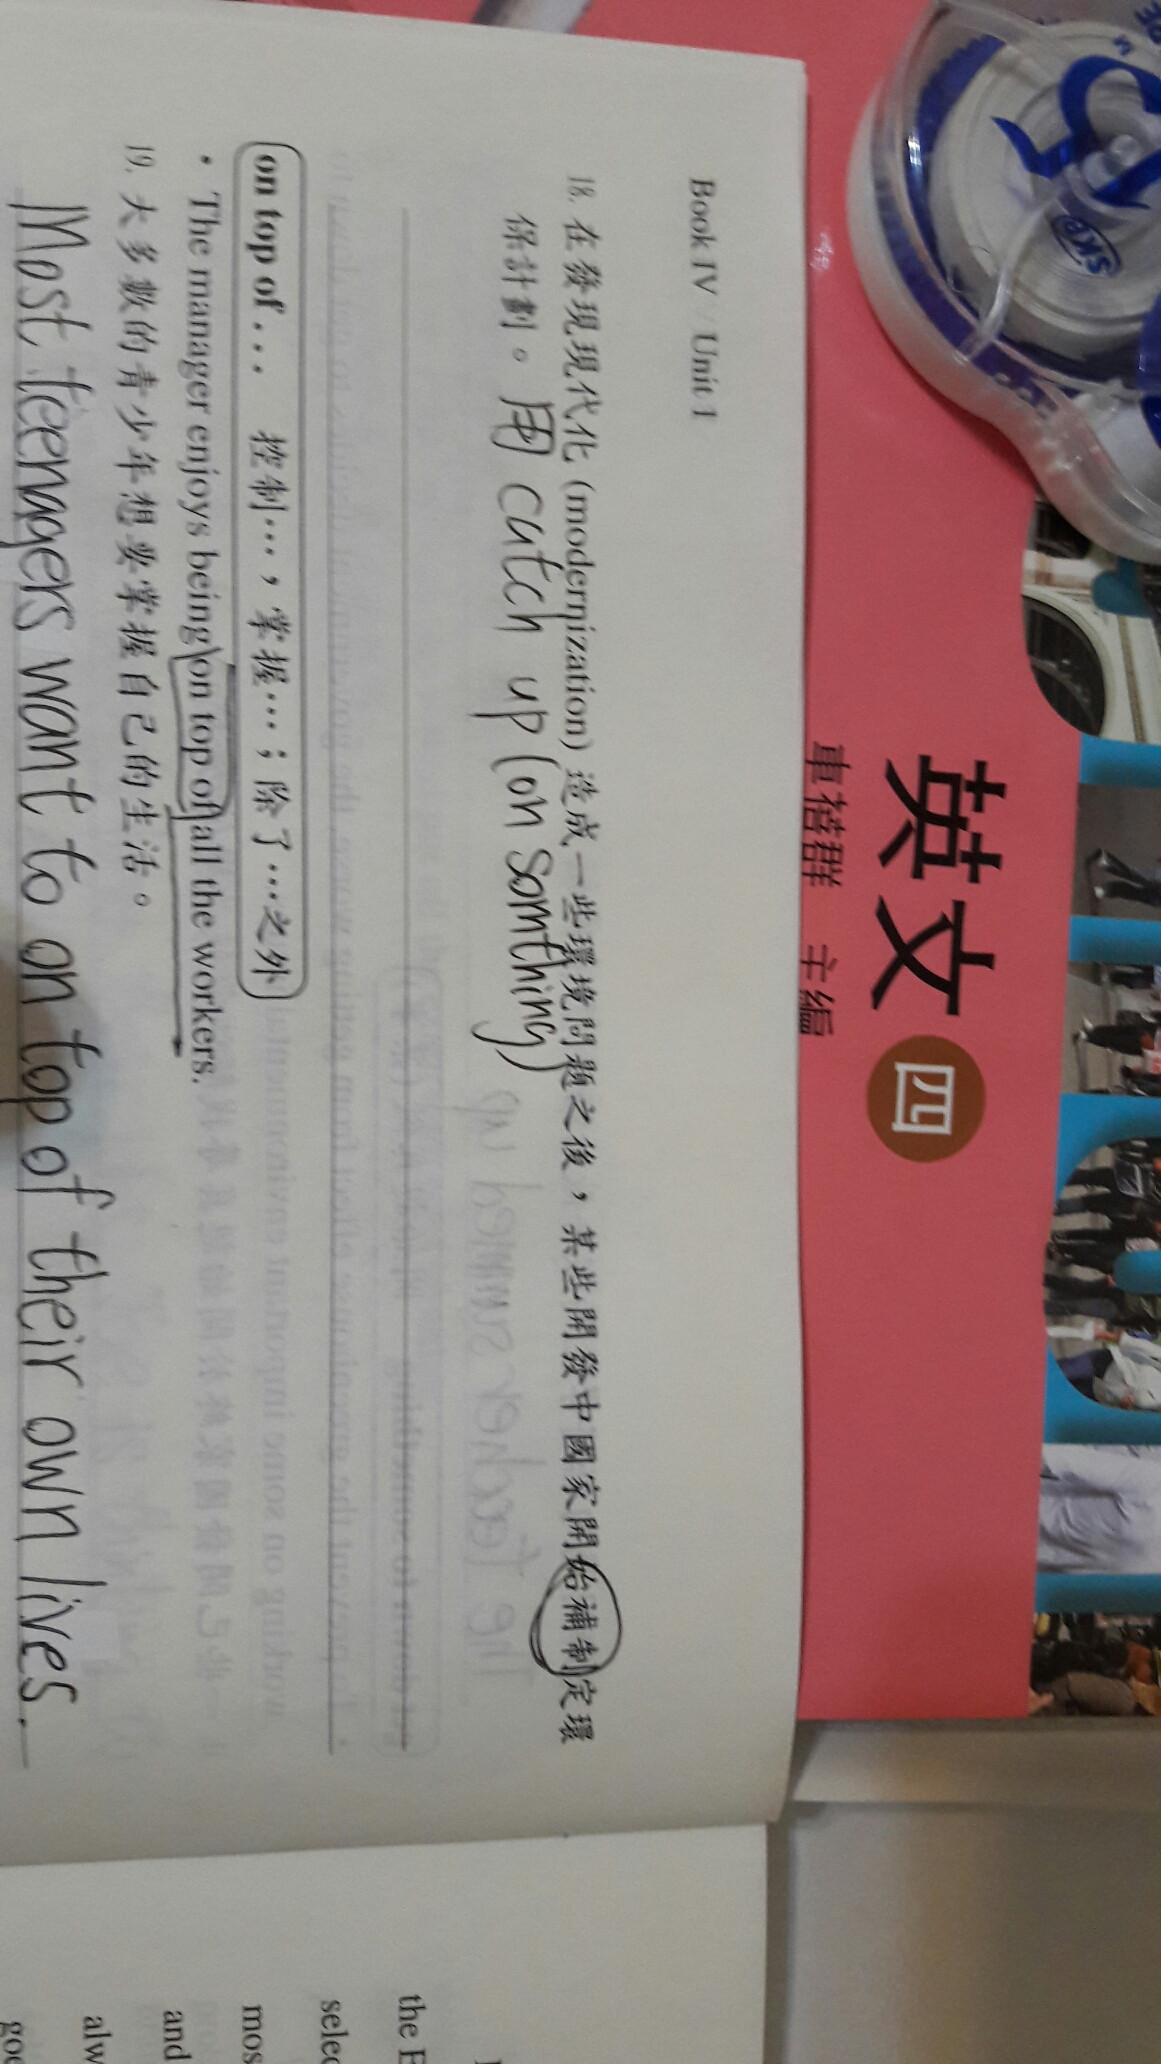 Book IV / Unit 1
18. 在發現現代化 (modernization) 造成一些環境問題之後，某些開發中國家開始補制定環
保計劃。用 catch up (on somthing)
on top of… 控制…，掌握…；除了…之外
• The manager enjoys being on top of all the workers.
19. 大多數的青少年想要掌握自己的生活。
Most teenagers want to on top of their own lives.
英文 四
車蓓群 主編
SKB
the E
selec
mos
and
alw
goo